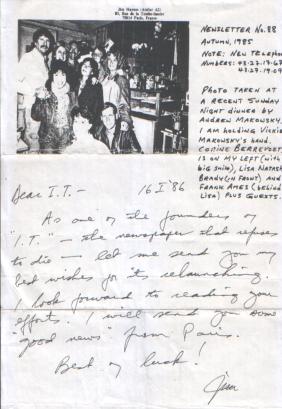 Jim Haynes (Atelier A2)
83, Rue de la Tombe-Issoire
75014 Paris, France
NEWSLETTER No. 88
AUTUMN, 1985
NOTE: NEW TELEPHONE
NUMBERS: 43-27-17-67
43-27-19-09
PHOTO TAKEN AT
A RECENT SUNDAY
NIGHT DINNER BY
ANDREW MAKOWSKY.
I AM HOLDING VICKIE
MAKOWSKY'S HAND.
CORINE
IS ON MY LEFT (WITH
BIG SMILE), LISA NATASH
BRANDY (IN FRONT) AND
FRANK AMES (BEHIND
LISA) PLUS GUESTS.
Dear I.T. — 16 I '86
As one of the founders of
"I.T." — the newspaper that refuses
to die — let me send you my
best wishes for its relaunching.
I look forward to reading your
efforts. I will send you some
"good news" from Paris.
Best of luck!
Jim